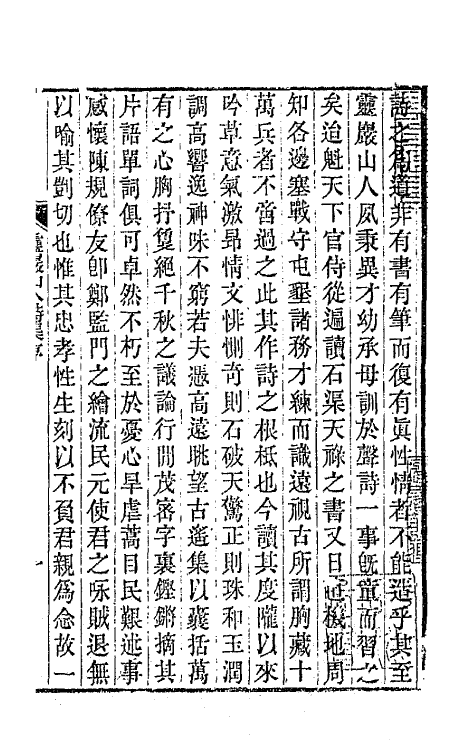 詩之為道非有書有筆而復有眞性情者不能造乎其至
靈巖山人夙秉異才幼承母訓於聲詩一事旣童而習之
矣迨魁天下官侍從遍讀石渠天祿之書又日直樞地周
知各邊塞戰守屯墾諸務才練而識遠視古所謂胸藏十
萬兵者不啻過之此其作詩之根柢也今讀其度隴以來
吟草意氣激昻情文悱惻奇則石破天驚正則珠和玉潤
調高響逸神味不窮若夫憑高遠眺望古遙集以囊括萬
有之心胸抒夐絕千秋之議論行閒茂密字裏鏗鏘摘其
片語單詞俱可卓然不朽至於憂心旱虐蒿目民艱述事
感懷陳規僚友卽鄭監門之繪流民元使君之咏賊退無
以喻其剴切也惟其忠孝性生刻以不負君親爲念故一
靈巖山人詩集序
一